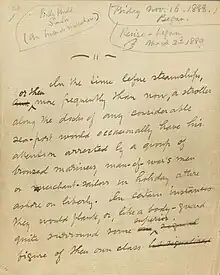 Billy Budd
Sailor
(An inside narrative)
Friday Nov. 16. 1888.
Began.
Revise - began
March 2d 1889
In the time before steamships,
or then more frequently than now, a stroller
along the docks of any considerable
sea-port would occasionally have his
attention arrested by a group of
bronzed mariners, man-of-war's men
or merchant-sailors in holiday attire
ashore on liberty. In certain instances
they would flank, or, like a body-guard
quite surround some superior
figure of their own class